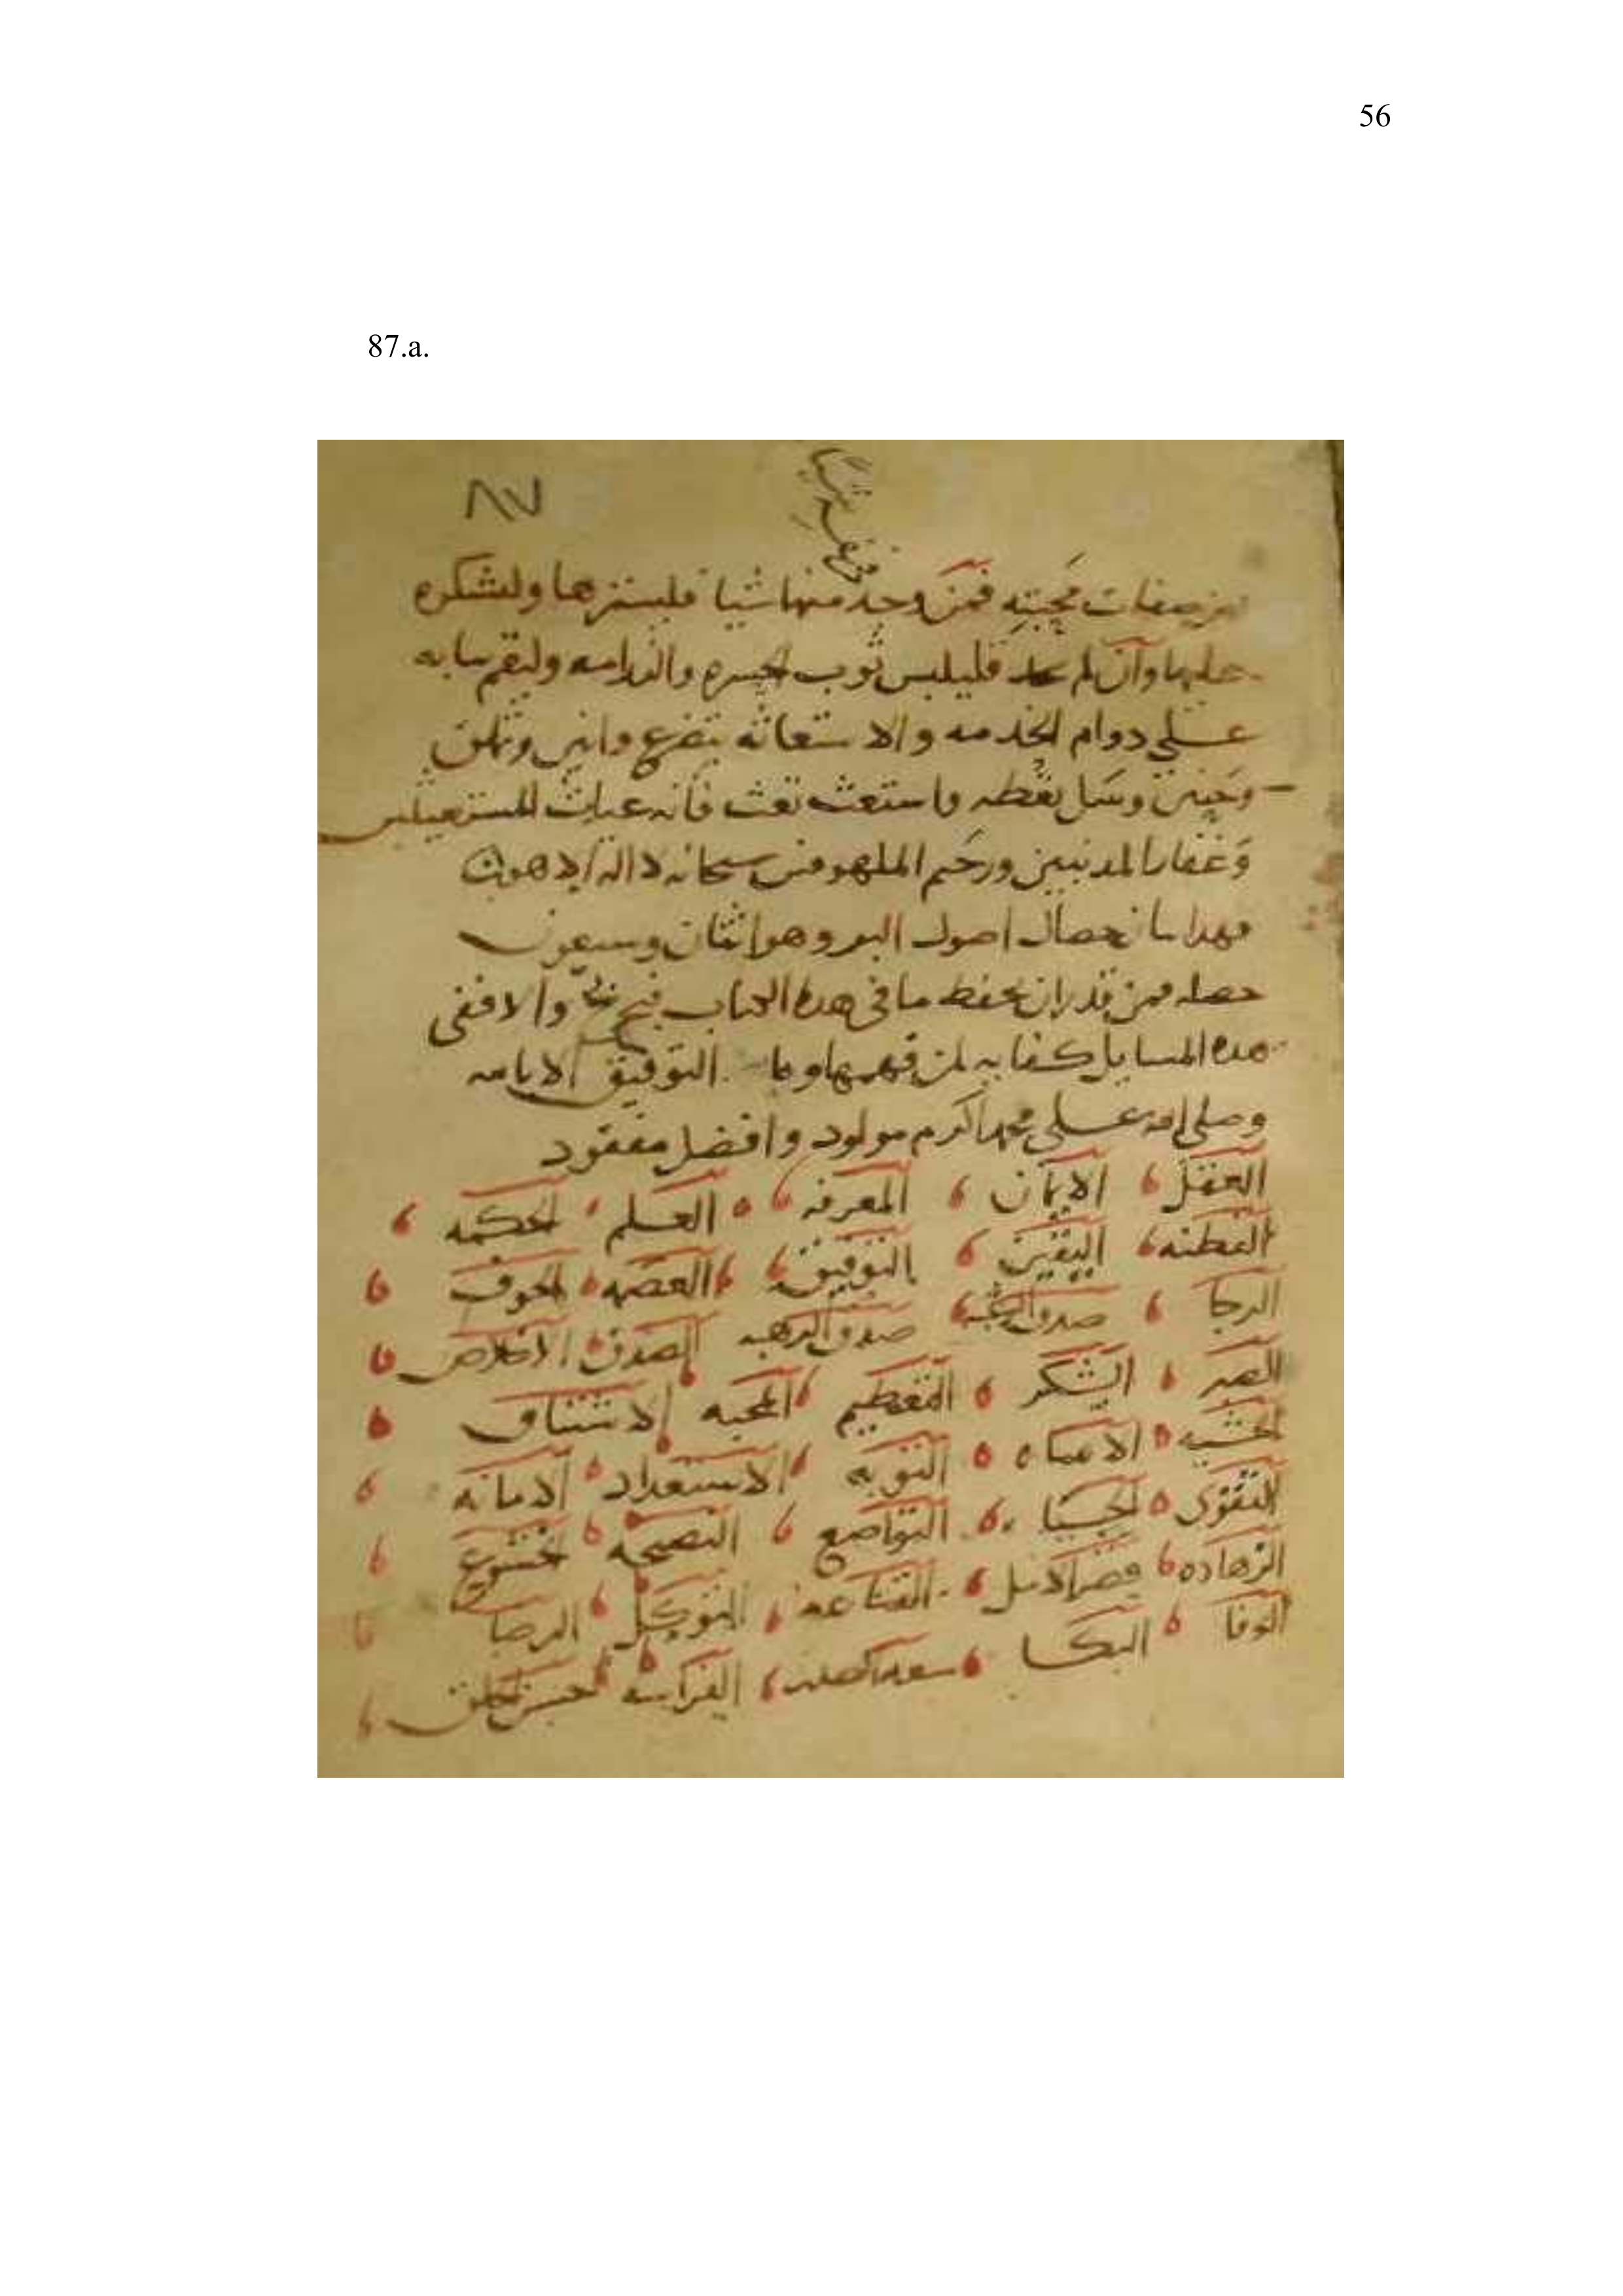 56
87.a.
٨٧
صفات محبته فمن وجد منها شيا فليستزها وليشكره
عليها وآن لم فليلبس ثوب الحسره والندامه وليقم بابه
علي دوام الخدمه والاستغاثه بتضرع وانين
وحنين وسل تعطه واستغث تغث فانه غياث للمستغيثين
وغفار المدنبين ورحيم الملهوفين سبحانه لا اله الا هو
فهدا بيان خصال اصول البر وهو اثنان وسبعون
خصله فمن قدر ان يحفظ ما في هده الكتاب والا ففي
هده المسايل كفايه لمن فهمها وما التوفيق الا بالله
وصلي الله علي محمد اكرم مولود وافضل مفقود
العقل الايمان المعرفه العلم الحكمه
الفطنه اليقين التوفيق العصمه الخوف
الرجا صدق الرغبه صدق الرهبه الصدق الاخلاص
الصبر الشكر التعظيم المحبه الاشتياق
الخشيه التوبه الاستعداد الامانه
التقوى الحيا التواضع النصيحه الخشوع
الزهاده قصر الامل القناعه التوكل الرضا
الوفا البكا الفراسه حسن الخلق